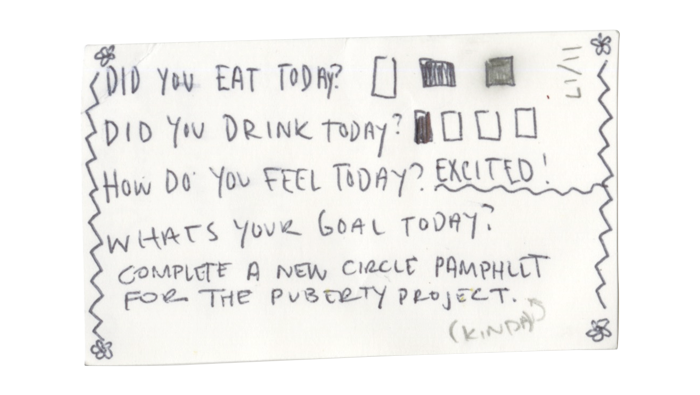 DID YOU EAT TODAY?
11/17
DID YOU DRINK TODAY?
HOW DO YOU FEEL TODAY? EXCITED!
WHATS YOUR GOAL TODAY?
COMPLETE A NEW CIRCLE PAMPHLET
FOR THE PUBERTY PROJECT.
(KINDA)